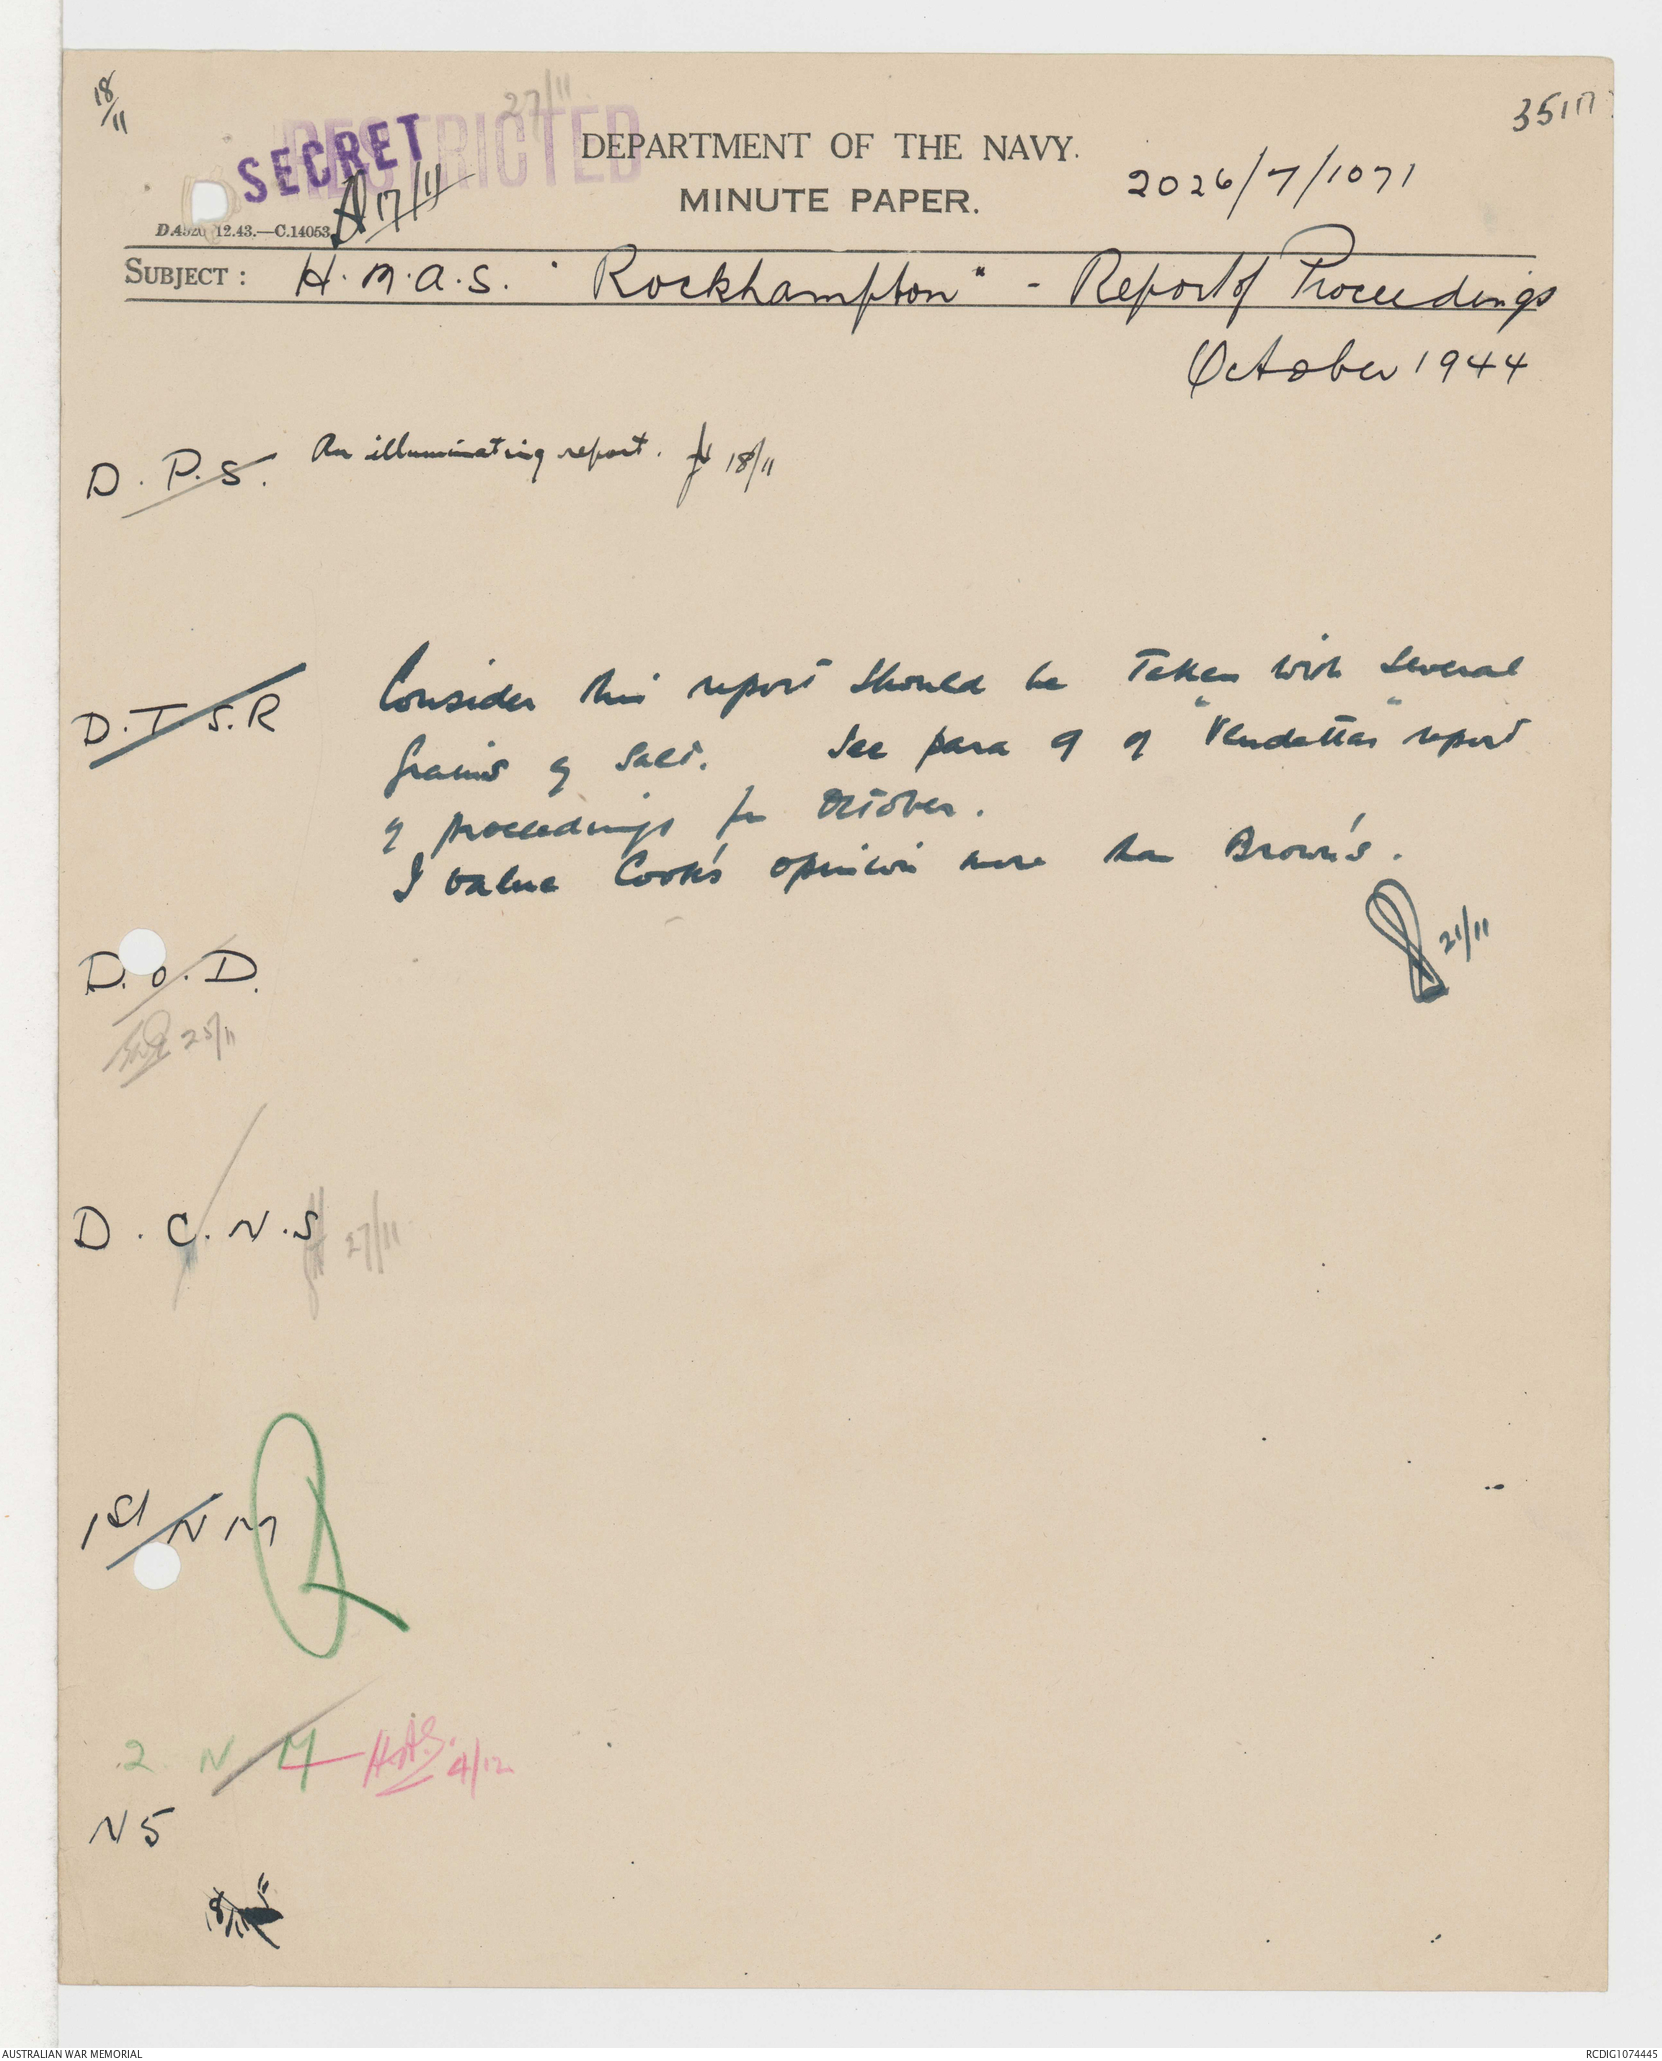 18/11
27/11
3517
RESTRICTED
SECRET
DEPARTMENT OF THE NAVY.
MINUTE PAPER.
2026/7/1071
17/11
D.4520 12.43.—C.14053
SUBJECT: H.M.A.S. "Rockhampton" - Report of Proceedings
October 1944
D.P.S. An illuminating report. 18/11
D.T.S.R Consider this report should be taken with several
grains of salt. See para 9 of "Vendettas" report
of proceedings for October.
I value Cook's opinion more than Brown's.
21/11
D.O.D.
25/11
D.C.N.S 27/11
1st NM
2 N.M H.A.S. 4/12
N5
18/11
AUSTRALIAN WAR MEMORIAL
RCDIG1074445